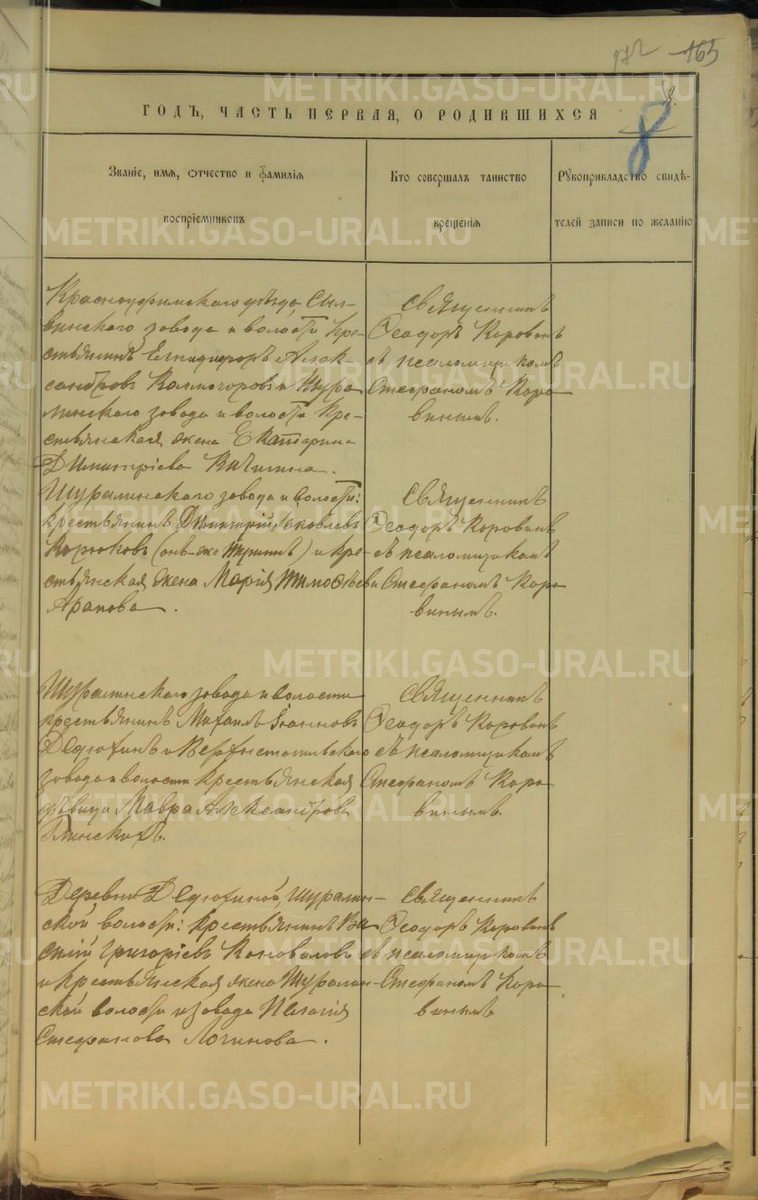 172 165
8
ГОДЪ, ЧАСТЬ ПЕРВАЯ, О РОДИВШИХСЯ
Званіе, имя, отчество и фамилія
воспріемниковъ
Кто совершалъ таинство
крещенія
Рукоприкладство свидѣ-
телей записи по желанію
Красноуфимскаго уѣзда, Сыл-
винскаго завода и волости кре-
стьянинъ Елпидифоръ Алек-
сандровъ Колмогоровъ и Шура-
линскаго завода и волости кре-
стьянская жена Екатерина
Димитріева Кичигина.
Священникъ
Ѳеодоръ Коровинъ
съ псаломщикомъ
Стефаномъ Коро
винымъ.
Шуралинскаго завода и волости:
крестьянинъ Димитрій Яковлевъ
(онъ-же) и кре-
стьянская жена Марія Тимоѳѣева
Арапова.
Священникъ
Ѳеодоръ Коровинъ
съ псаломщикомъ
Стефаномъ Коро
винымъ.
Шуралинскаго завода и волости
крестьянинъ Михаилъ Іоанновъ
Дедюхинъ и Верхнетагильскаго
завода и волости крестьянская
дѣвица Мавра Александрова
Священникъ
Ѳеодоръ Коровинъ
съ псаломщикомъ
Стефаномъ Коро
винымъ.
Деревни Дедюхиной, Шуралин-
ской волости: крестьянинъ Ва-
силій Григоріевъ Коноваловъ
и крестьянская жена Шуралин-
ской волости и завода Пелагія
Стефанова Логинова.
Священникъ
Ѳеодоръ Коровинъ
съ псаломщикомъ
Стефаномъ Коро
винымъ
METRIKI.GASO-URAL.RU